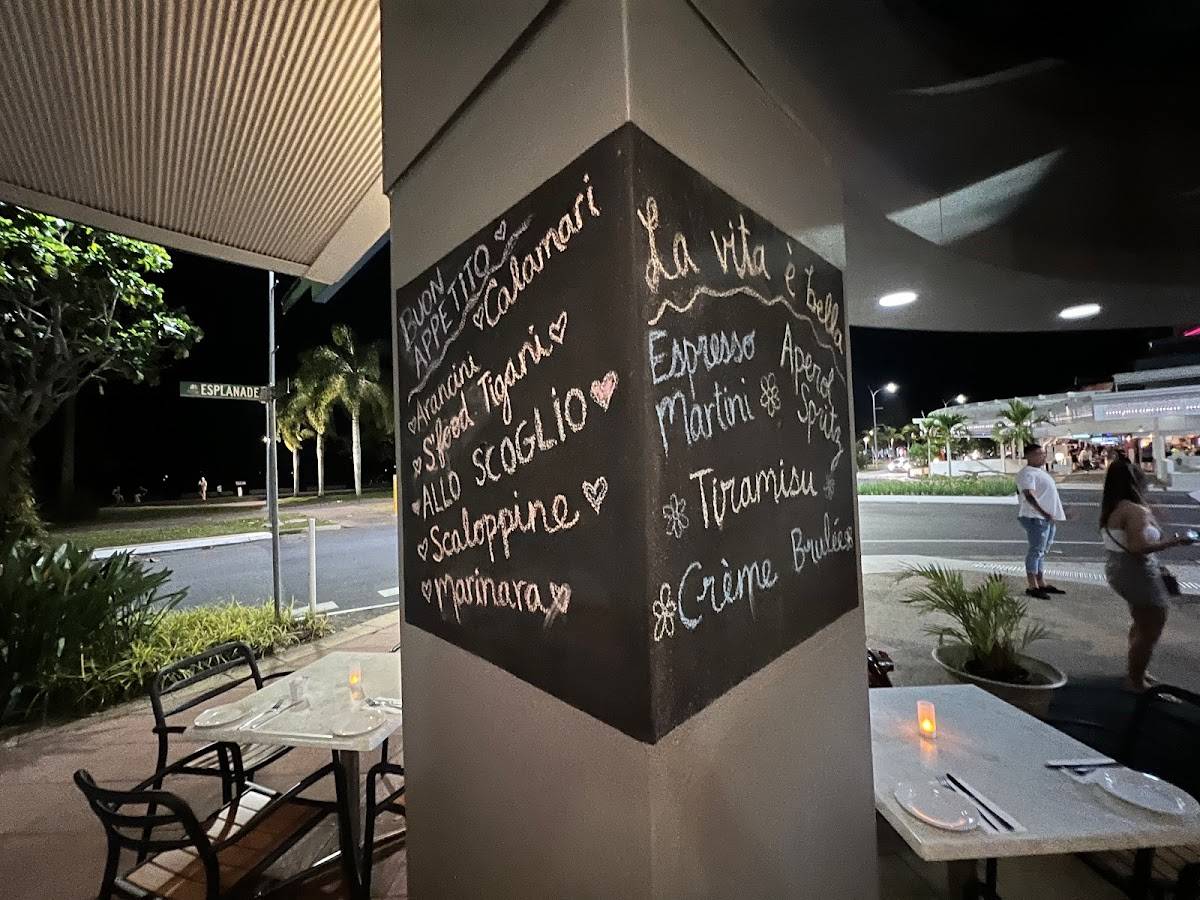 ESPLANADE
BUON
APPETITO
Calamari
Arancini
S.food Tigani
ALLO SCOGLIO
Scaloppine
marinara
La vita è bella
Espresso
Martini
Aperol
Spritz
Tiramisu
Crème Brulée